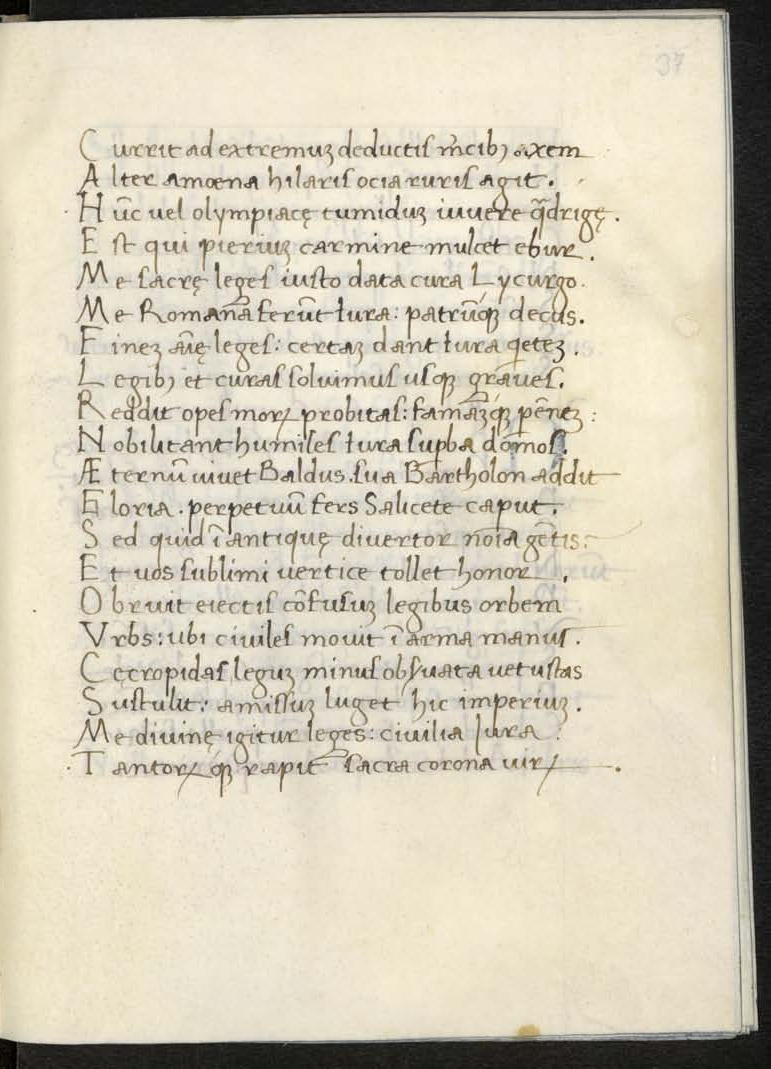 37
Currit ad extremuꝫ deductis m̄cibꝫ axem
Alter amœna hilaris ocia ruris agit.
Hūc vel olympiacę tumiduꝫ iuvere q̄drigę.
Est qui pieriuꝫ carmine mulcet ebur.
Me sacrę leges iusto data cura Lycurgo.
Me Romana ferūt iura: patrūqꝫ decus.
leges: certaꝫ dant iura
Legibꝫ et curas solvimus usqꝫ graves.
Reddit opes moꝝ probitas: famāqꝫ
Nobilitant humiles iura supba domos.
Æternū vivet Baldus. sua Bartholon addit
Gloria. perpetuū fers Salicete caput.
Sed quid ī antiquę divertor noīa gētis:
Et vos sublimi vertice tollet honor.
Obruit eiectis cōfusuꝫ legibus orbem
Vrbs: ubi civiles movit ī arma manus.
Cęcropidas leguꝫ minus obsvata vetustas
Sustulit: amissuꝫ luget hic imperiuꝫ.
Me divinę igitur leges: civilia Jura:
Tantoꝝ qꝫ rapit sacra corona viꝝ.